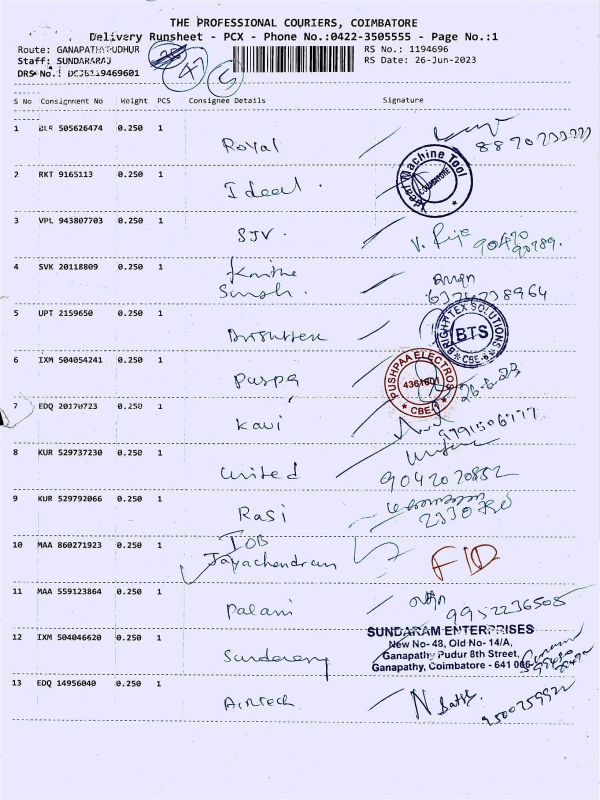 THE PROFESSIONAL COURIERS, COIMBATORE
Delivery Runsheet - PCX - Phone No.:0422-3505555 - Page No.:1
Route: GANAPATHYPUDHUR
RS No.: 1194696
Staff: SUNDARARAJ
RS Date: 26-Jun-2023
DRS No.:
47
5
S No Consignment No Weight PCS Consignee Details Signature
1 BLR 505626474 0.250 1 Royal
2 RKT 9165113 0.250 1 Ideal.
Ideal Machine Tool
COIMBATORE
3 VPL 943807703 0.250 1 SJV.
4 SVK 20118809 0.250 1
Singh.
5 UPT 2159650 0.250 1
BRIGHTEX SOLUTIONS
BTS
CBE-6
6 IXM 504054241 0.250 1 Puspa
PUSHPAA ELECTROS
4361601
CBE
26-6-23
7 EDQ 20170723 0.250 1 Kavi
8 KUR 529737230 0.250 1 United
9042070852
9 KUR 529792066 0.250 1 Rasi
2330780
10 MAA 860271923 0.250 1 IOB
Jayachendran
11 MAA 559123864 0.250 1 Palani
9952236505
12 IXM 504046620 0.250 1
SUNDARAM ENTERPRISES
New No- 48, Old No- 14/A,
Ganapathy Pudur 8th Street,
Ganapathy, Coimbatore - 641 006
13 EDQ 14956040 0.250 1 Airtech